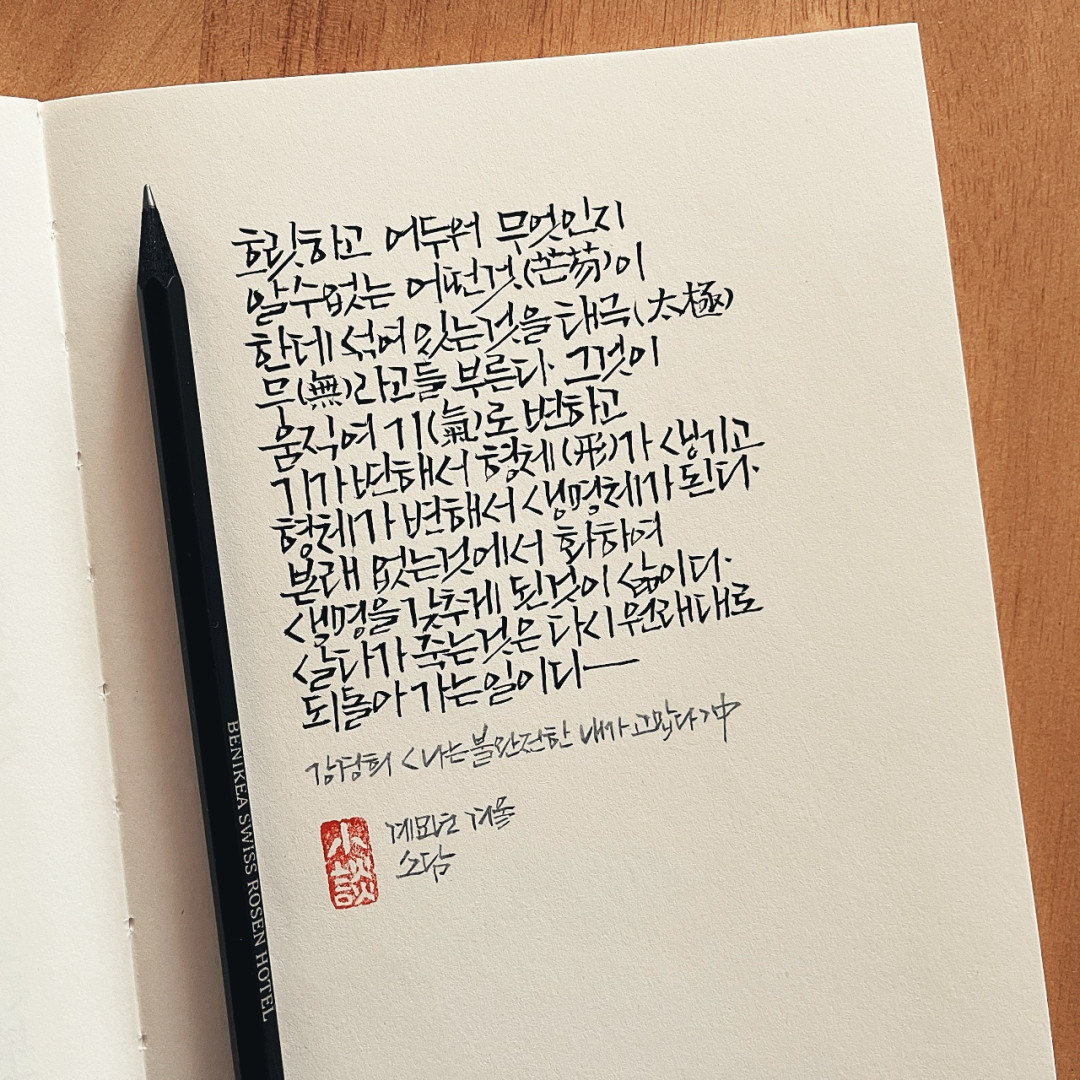 흐릿하고 어두워 무엇인지
알수없는 어떤것(芒芴)이
한데 섞여 있는것을 태극(太極)
무(無)라고들 부른다. 그것이
움직여 기(氣)로 변하고
기가 변해서 형체(形)가 생기고
형체가 변해서 생명체가 된다.
본래 없는것에서 화하여
생명을 갖추게 된것이 삶이다.
살다가 죽는것은 다시 원래대로
되돌아 가는 일이다—
강영희 <나는 불완전한 내가 고맙다>中
계묘년 겨울
소담
小談
BENIKEA SWISS ROSEN HOTEL